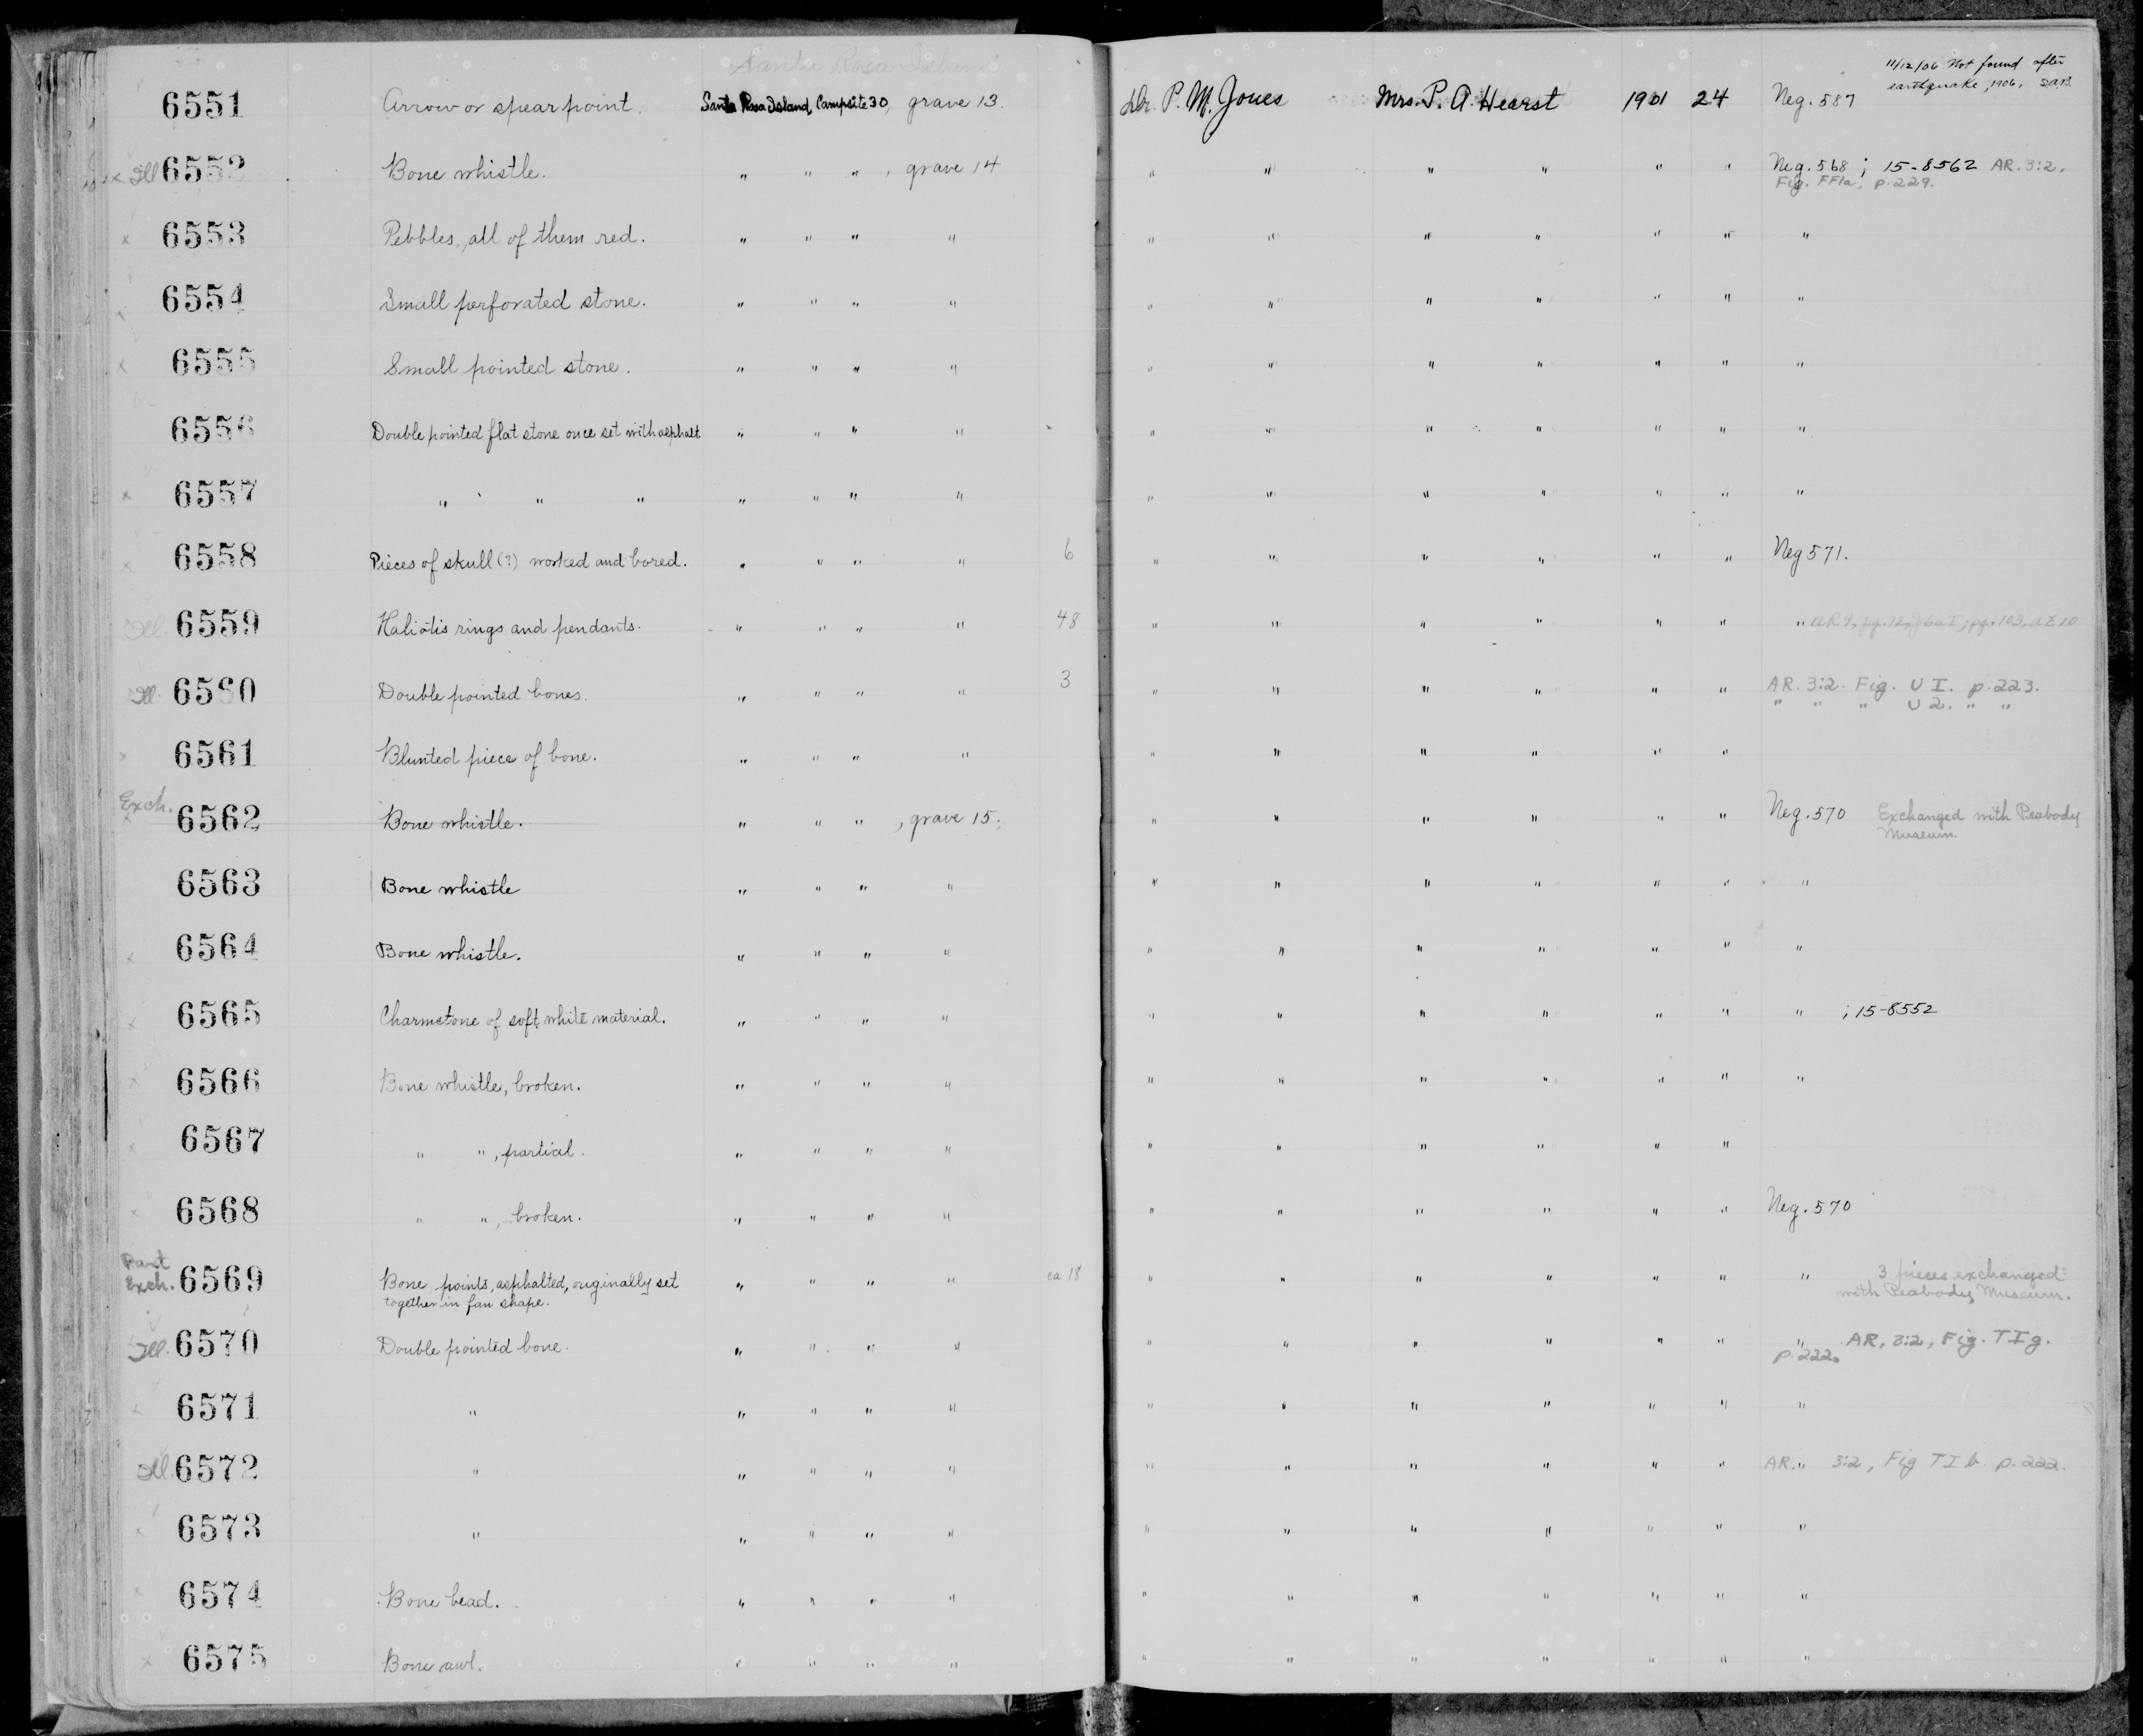 Santa Rosa Island
6551 Arrow or spear point. Santa Rosa Island, Campsite 30, grave 13. Dr. P. M. Jones Mrs. P. A. Hearst 1901 24 Neg. 587 11/12/06 Not found after
earthquake, 1906.
Ill 6552 Bone whistle. " " " , grave 14 " " " " " " Neg. 568 ; 15-8562 AR. 3:2.
Fig. FF1a, p. 229.
x 6553 Pebbles, all of them red. " " " " " " " " " " "
x 6554 Small perforated stone. " " " " " " " " " " "
x 6555 Small pointed stone. " " " " " " " " " " "
6556 Double pointed flat stone once set with asphalt " " " " " " " " " " "
x 6557 " " " " " " " " " " " " " "
x 6558 Pieces of skull (?) worked and bored. " " " " 6 " " " " " " Neg 571.
Ill. 6559 Haliotis rings and pendants. " " " " 48 " " " " " " " AR 9, pg. 72, pg. 103, AE 10
Ill. 6560 Double pointed bones. " " " " 3 " " " " " " AR. 3:2. Fig. U I. p. 223.
" " " U 2. " "
x 6561 Blunted piece of bone. " " " " " " " " " "
Exch.
x 6562 Bone whistle. " " " , grave 15. " " " " " " Neg. 570 Exchanged with Peabody
Museum.
6563 Bone whistle " " " " " " " " " " "
x 6564 Bone whistle. " " " " " " " " " " "
x 6565 Charmstone of soft white material. " " " " " " " " " " " ; 15-8552
x 6566 Bone whistle, broken. " " " " " " " " " " "
x 6567 " " , partial. " " " " " " " " " "
x 6568 " " , broken. " " " " " " " " " " Neg. 570
Part
Exch. 6569 Bone points, asphalted, originally set " " " " ca 18 " " " " " " " 3 pieces exchanged
together in fan shape. with Peabody Museum.
Ill. 6570 Double pointed bone. " " " " " " " " " " " AR, 3:2, Fig. T I g.
p. 222.
x 6571 " " " " " " " " " " " "
Ill. 6572 " " " " " " " " " " " AR. " 3:2, Fig T I b. p. 222.
x 6573 " " " " " " " " " " " "
x 6574 Bone bead. " " " " " " " " " " "
x 6575 Bone awl. " " " " " " " " " " "